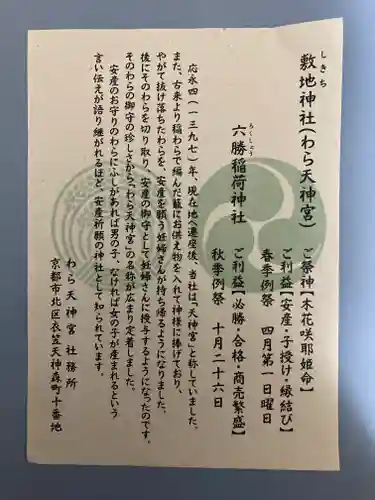 しきち
敷地神社(わら天神宮)
ご祭神【木花咲耶姫命】
ご利益【安産・子授け・縁結び】
春季例祭 四月第一日曜日
ろくしょう
六勝稲荷神社
ご利益【必勝・合格・商売繁盛】
秋季例祭 十月二十六日
応永四(一三九七)年、現在地へ遷座後、当社は「天神宮」と称していました。
また、古来より稲わらで編んだ籠にお供え物を入れて神様に捧げており、
やがて抜け落ちたわらを、安産を願う妊婦さんが持ち帰るようになりました。
後にそのわらを切り取り、安産の御守として妊婦さんに授与するようになったのです。
そのわらの御守の珍しさから、「わら天神宮」の名称が広まり定着しました。
安産のお守りのわらにふしがあれば男の子、なければ女の子が産まれるという
言い伝えが語り継がれるほど、安産祈願の神社として知られています。
わら天神宮社務所
京都市北区衣笠天神森町十番地